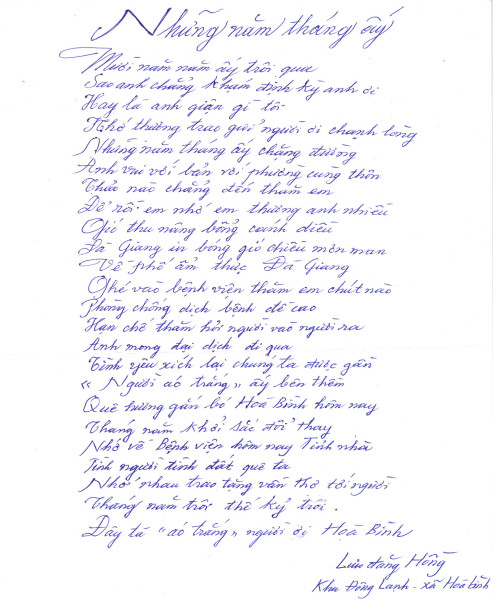 Những năm tháng ấy
Mười năm năm ấy trôi qua
Sao anh chẳng khám định kỳ anh ơi
Hay là anh giận gì tôi
Nhớ thương trao gửi người ơi chạnh lòng
Những năm tháng ấy chẳng đường
Anh vui với bản với phường cung thôn
Thảo nào chẳng đến thăm em
Để rồi em nhớ em thương anh nhiều
Gió thu nâng bổng cánh diều
Đà Giang in bóng gió chiều mơn man
Về phố ẩm thực Đà Giang
Ghé vào bệnh viện thăm em chút nào
Phòng chống dịch bệnh đề cao
Hạn chế thăm hỏi người vào người ra
Anh mong đại dịch đi qua
Tình yêu xích lại chúng ta được gần
" Người áo trắng " ấy bên thềm
Quê hương gắn bó Hoà Bình hôm nay
Tháng năm khởi sắc đổi thay
Nhớ về Bệnh viện hôm nay Tỉnh nhà
Tình người tình đất quê ta
Nhớ nhau trao tặng vần thơ tới người
Tháng năm trôi thế kỷ trôi .
Đây là " áo trắng " người ơi Hoà Bình
Lưu đăng Hồng
Khu Đồng Lạnh - xã Hoà Bình